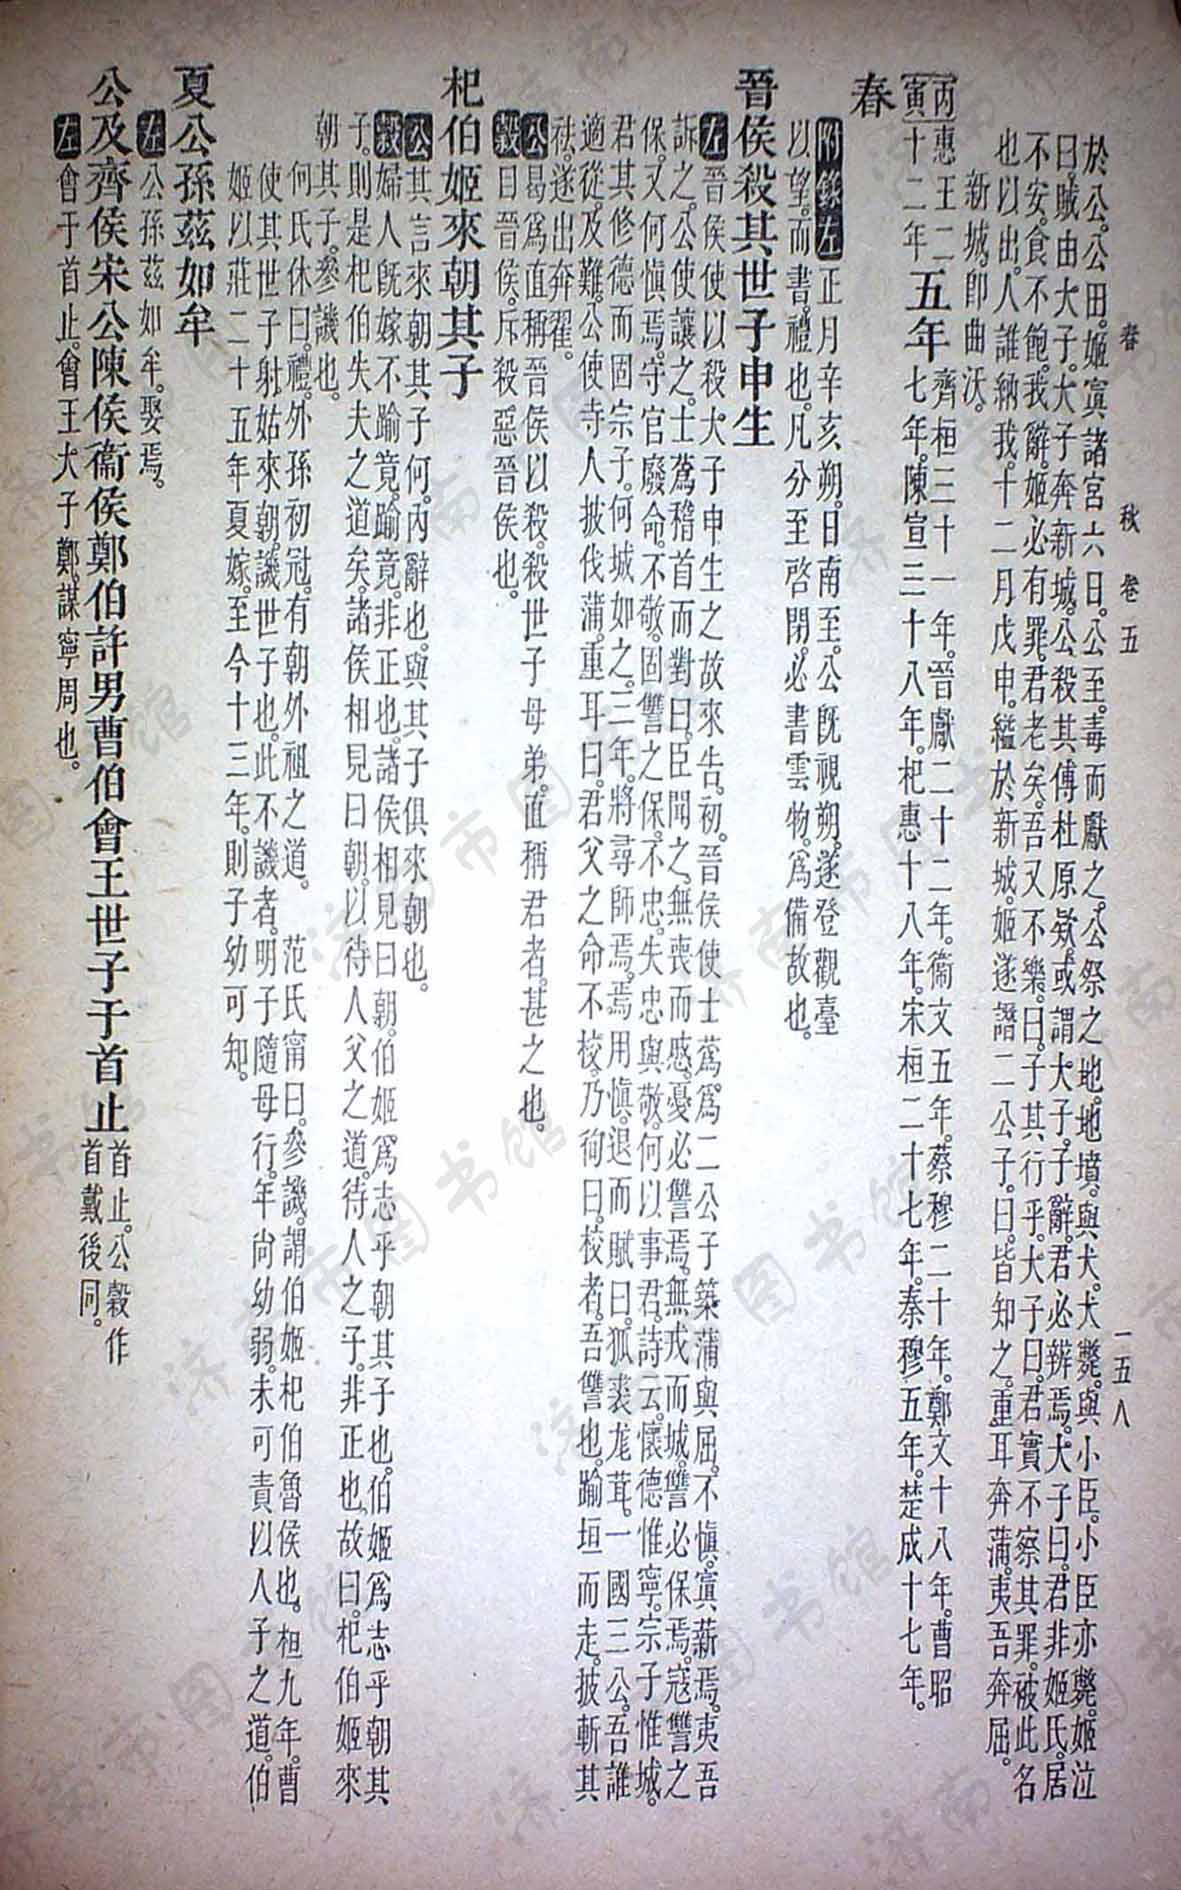 春　秋　卷五　一五八
於公。公田。姬寘諸宮六日。公至。毒而獻之。公祭之地。地墳。與犬。犬斃。與小臣。小臣亦斃。姬泣
曰。賊由大子。大子奔新城。公殺其傅杜原款。或謂大子。子辭。君必辨焉。大子曰。君非姬氏。居
不安。食不飽。我辭。姬必有罪。君老矣。吾又不樂。曰。子其行乎。大子曰。君實不察其罪。被此名
也以出。人誰納我。十二月戊申。縊於新城。姬遂譖二公子。曰。皆知之。重耳奔蒲。夷吾奔屈。
新城。卽曲沃。
丙寅
惠王二十二年
五年
齊桓三十一年。晉獻二十二年。衞文五年。蔡穆二十年。鄭文十八年。曹昭
七年。陳宣三十八年。杞惠十八年。宋桓二十七年。秦穆五年。楚成十七年。
春
附錄左正月辛亥朔。日南至。公旣視朔。遂登觀臺
以望。而書。禮也。凡分至啓閉。必書雲物。爲備故也。
晉侯殺其世子申生
左晉侯使以殺大子申生之故來告。初。晉侯使士蔿。爲二公子築蒲與屈。不慎。寘薪焉。夷吾
訴之。公使讓之。士蔿稽首而對曰。臣聞之。無喪而慼。憂必讐焉。無戎而城。讐必保焉。寇讐之
保。又何慎焉。守官廢命。不敬。固讐之保。不忠。失忠與敬。何以事君。詩云。懷德惟寧。宗子惟城。
君其修德而固宗子。何城如之。三年。將尋師焉。焉用慎。退而賦曰。狐裘尨茸。一國三公。吾誰
適從。及難。公使寺人披伐蒲。重耳曰。君父之命不校。乃徇曰。校者。吾讐也。踰垣而走。披斬其
袪。遂出奔翟。
公曷爲直稱晉侯以殺。殺世子母弟。直稱君者。甚之也。
穀目晉侯。斥殺。惡晉侯也。
杞伯姬來朝其子
公其言來朝其子何。內辭也。與其子俱來朝也。
穀婦人旣嫁不踰竟。踰竟。非正也。諸侯相見曰朝。伯姬爲志乎朝其子也。伯姬爲志乎朝其
子。則是杞伯失夫之道矣。諸侯相見曰朝。以待人父之道。待人之子。非正也。故曰。杞伯姬來
朝其子。參譏也。
何氏休曰。禮。外孫初冠。有朝外祖之道。　范氏甯曰。參譏。謂伯姬杞伯魯侯也。桓九年。曹
伯使其世子射姑來朝。譏世子也。此不譏者。明子隨母行。年尚幼弱。未可責以人子之道。伯
姬以莊二十五年夏嫁。至今十三年。則子幼可知。
夏公孫茲如牟
左公孫茲如牟。娶焉。
公及齊侯宋公陳侯衞侯鄭伯許男曹伯會王世子于首止
首止。公穀作
首戴後同。
左會于首止。會王大子鄭。謀寧周也。